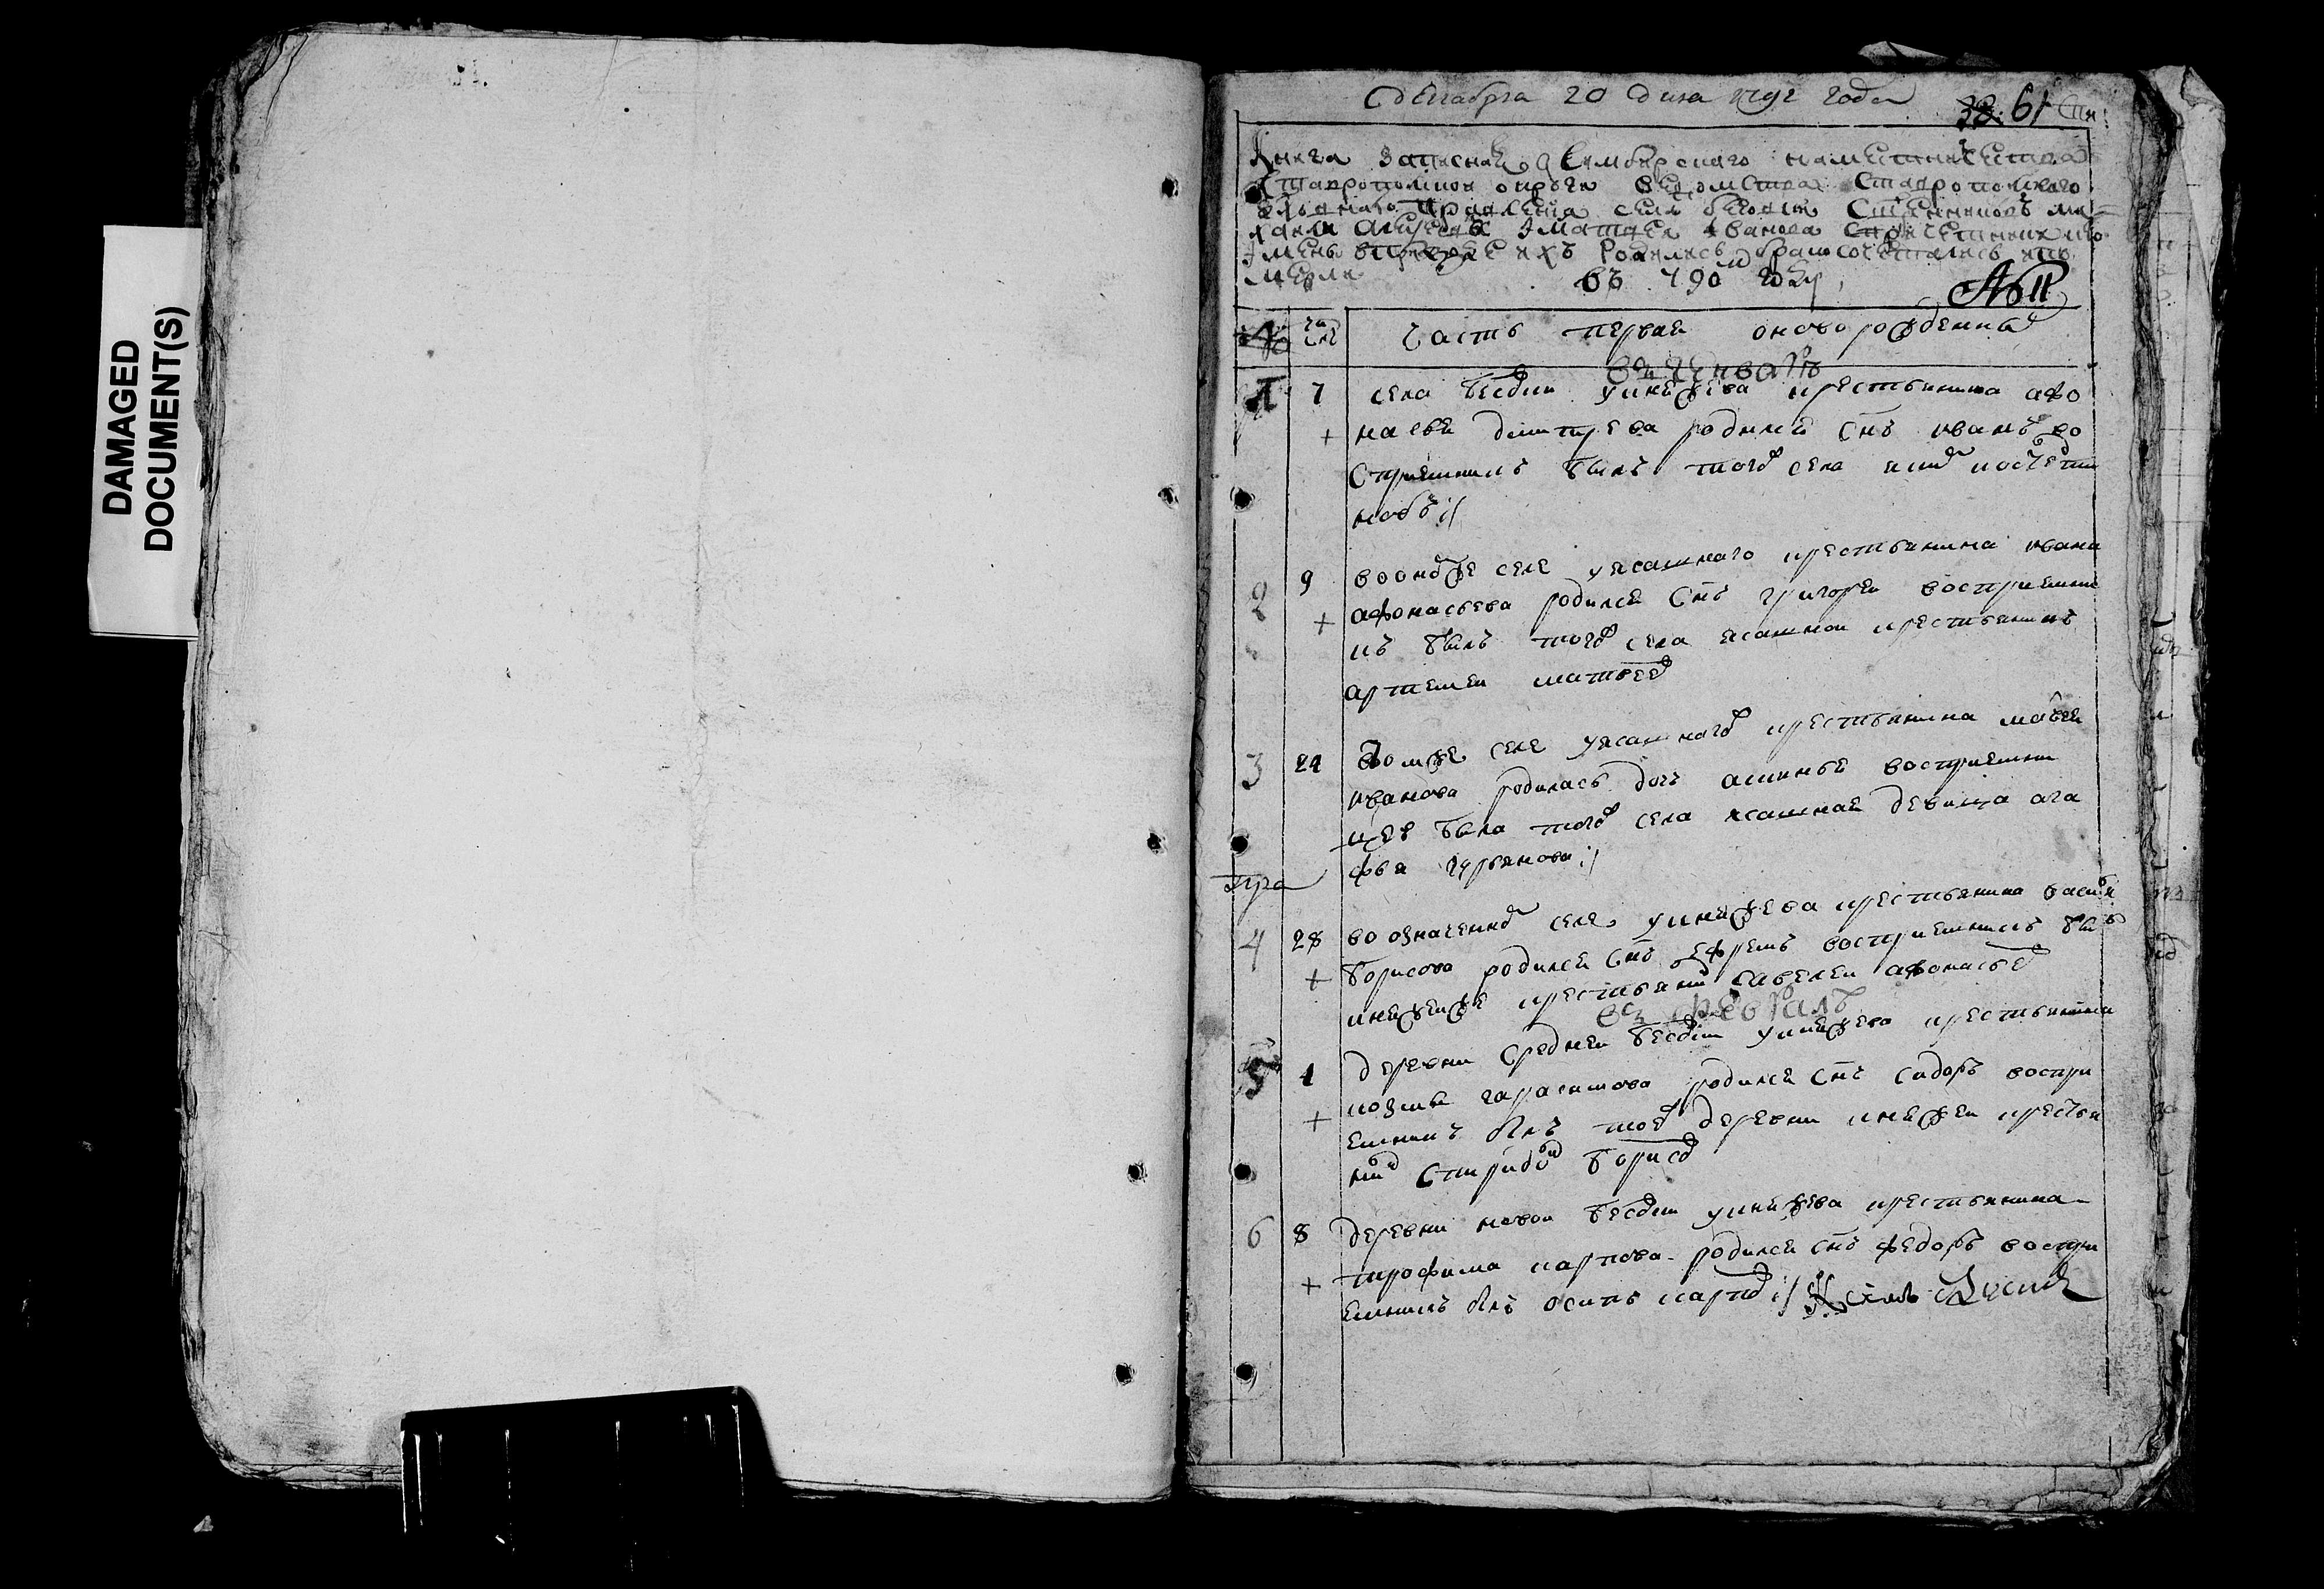 DAMAGED
DOCUMENT(S)
декабря 20 дня года
38. 61
Книга записная Симбирского наместничества
Ставропольской округи ведомства Ставропольского
духовнаго правления села священниковъ ми
хаила Алексеева Иматвея Иванова
родились брако сочетались
въ 790 году
№ чи сле Часть первая оноворожденныхъ
въ генваре
1 7 села бесовки унежева крестьянина афо
+ насея дмитрева родилса снъ иванъ во
сприемникъ былъ того села
новъ://
2 9 воонже селе уясашнаго крестьянина ивана
+ афонасьева родилса снъ григореи восприемни
къ былъ того села ясашнои крестьянинъ
артемеи матвеевъ
3 24 втомже селе уясашнаго крестьянина матвея
иванова родилась дочь аксинья восприемни
цеи была того села ясашная девица ага
фья гурьянова://
4 28 во означенномъ селе унежева крестьянина василья
+ борисова родилса снъ ефремъ восприемникъ былъ
крестьянинъ савелеи афонасьевъ
въ феврале
5 1 деревни среднеи бесовки унежева крестьянина
козмы гарасимова родилса снъ сидоръ воспри
+ емникъ былъ тоеже деревни крестья
нинъ спиридонъ борисовъ
6 8 деревни новои бесовки унежева крестьянина
+ трофима карпова родилса снъ федоръ воспри
емникъ былъ осипъ карповъ://